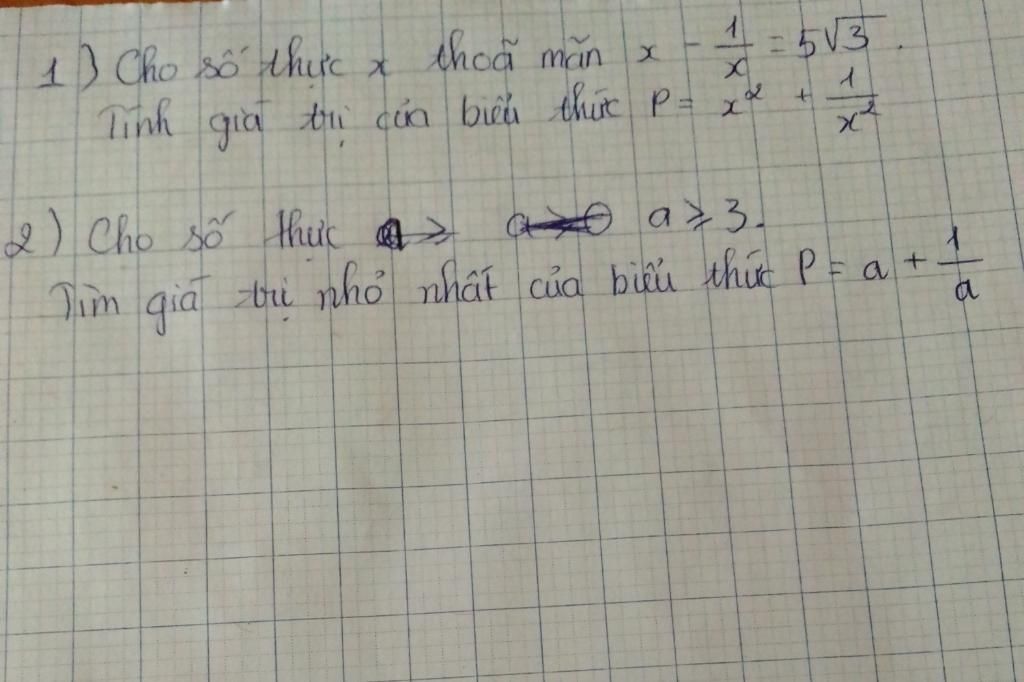 1) Cho số thực x thoã mãn x - 1/x = 5√3.
Tính giá trị của biểu thức P = x² + 1/x²
2) Cho số thực a ≥ 3.
Tìm giá trị nhỏ nhất của biểu thức P = a + 1/a